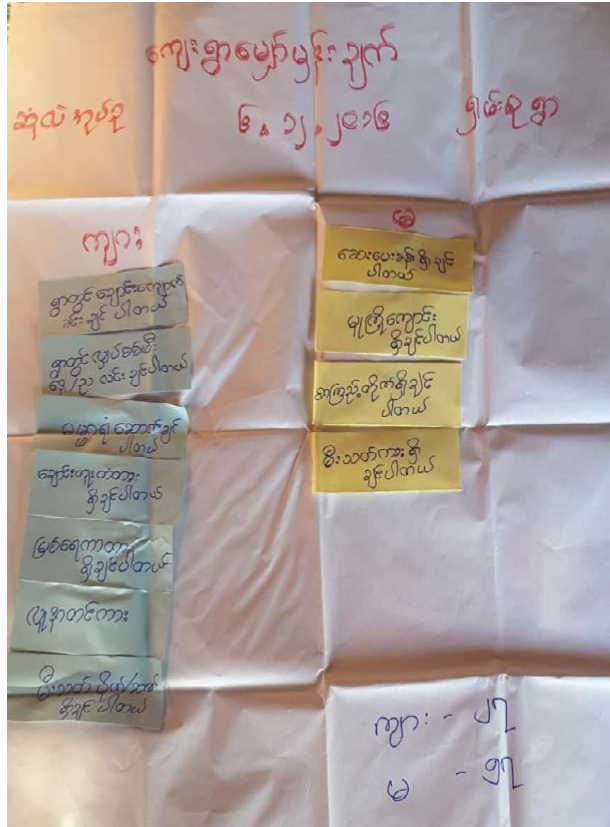 ကျေးရွာမျှော်မှန်းချက်
ဆုံလဲအုပ်စု ၆.၁၂.၂၀၁၆ ရှမ်းစုရွာ
ကျား
မ
ရွာတွင်းချောင်းကျောက်
ခင်းချင်ပါတယ်
ရွာတွင်းလျှပ်စစ်မီး
နေ့/ည လင်းချင်ပါတယ်
ဓမ္မာရုံဆောက်ချင်
ပါတယ်
ချောင်းကူးတံတား
ရှိချင်ပါတယ်
မြစ်ရေကာတာ
ရှိချင်ပါတယ်
လူနာတင်ကား
မီးသတ်
ရှိချင်ပါတယ်
ဆေးပေးခန်းရှိချင်
ပါတယ်
မူကြိုကျောင်း
ရှိချင်ပါတယ်
စာကြည့်တိုက်ရှိချင်
ပါတယ်
မီးသတ်ကားရှိ
ချင်ပါတယ်
ကျား - ၂၇
မ - ၅၇